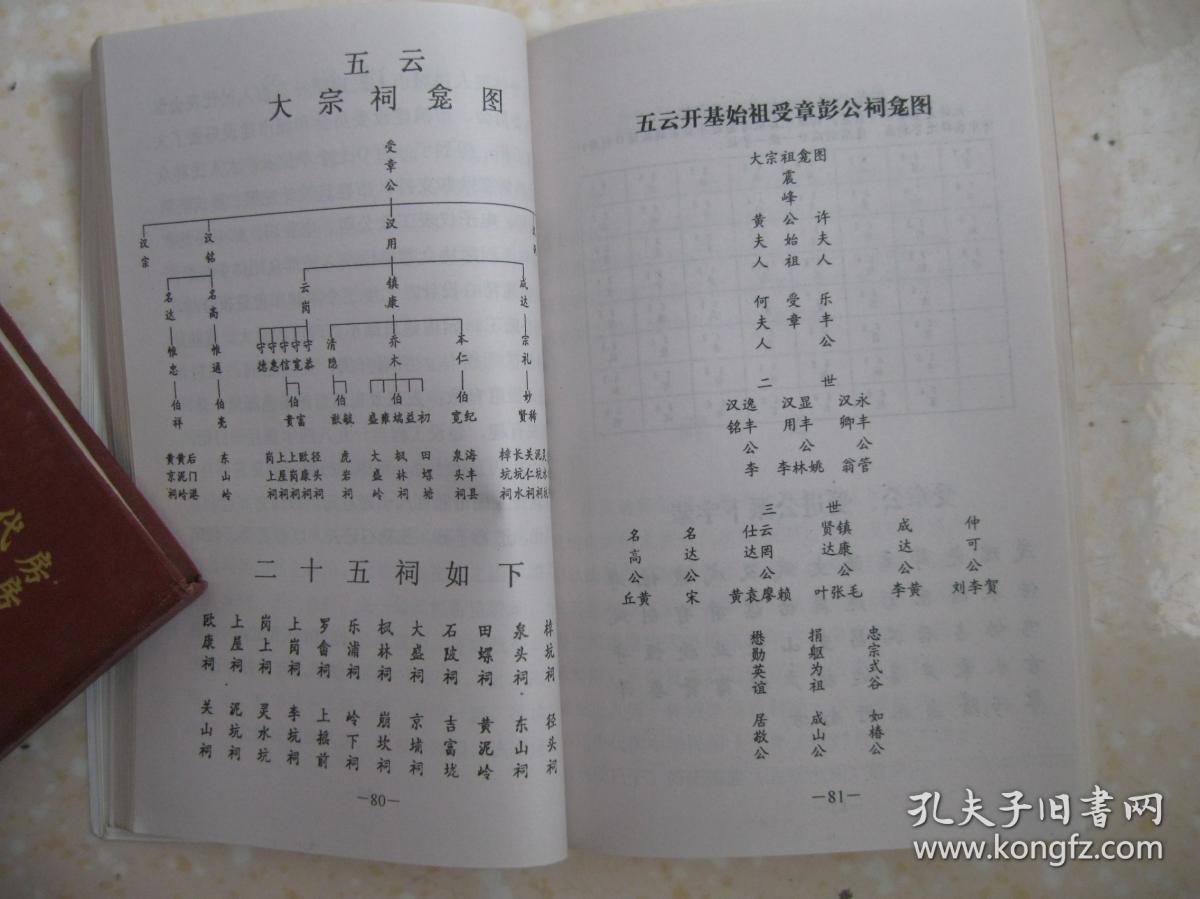 五云
大宗祠龛图
受章公
汉宗 汉铭 汉用
名达 名高 云岗 镇康 成达
惟忠 惟通 守德 守惠 守信 守宽 守恭 清隐 乔木 本仁 宗礼
伯祥 伯亮 伯贵 富 伯猷 毓 伯盛 雍 瑞 益 初 伯宽 纪 妙贤 稀
黄京祠 黄泥岭 后门港 东山岭 岗上祠 上屋祠 上岗祠 欧康祠 径头祠 虎岩祠 大盛岭 枫林祠 田螺塘 泉头祠 海丰县 樟坑祠 长坑水 关仁祠
二十五祠如下
欧康祠 上屋祠 岗上祠 上岗祠 罗畲祠 乐浦祠 枫林祠 大盛祠 石陂祠 田螺祠 泉头祠 樟坑祠
关山祠 泥坑祠 灵水坑 李坑祠 上摇前 岭下祠 崩坎祠 京埔祠 吉富垅 黄泥岭 东山祠 径头祠
—80—
五云开基始祖受章彭公祠龛图
大宗祖龛图
黄夫人 震峰公始祖 许夫人
何夫人 受章 乐丰公
二世
汉铭 逸丰公李 汉用 显丰公李林姚 汉卿 永丰公翁管
三世
名高公丘黄 名达公宋 仕达 云罔公黄袁廖赖 贤达 镇康公叶张毛 成达公李黄 仲可公刘李贺
懋勋英谊 捐躯为祖 忠宗式谷
居敬公 成山公 如椿公
—81—
代房房
孔夫子旧书网
www.kongfz.com